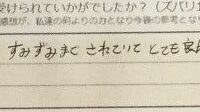 受けられていかがでしたか？（ズバリ
感想が、私達の何よりの力となり今後の参考とな
すみずみまで されていて とても